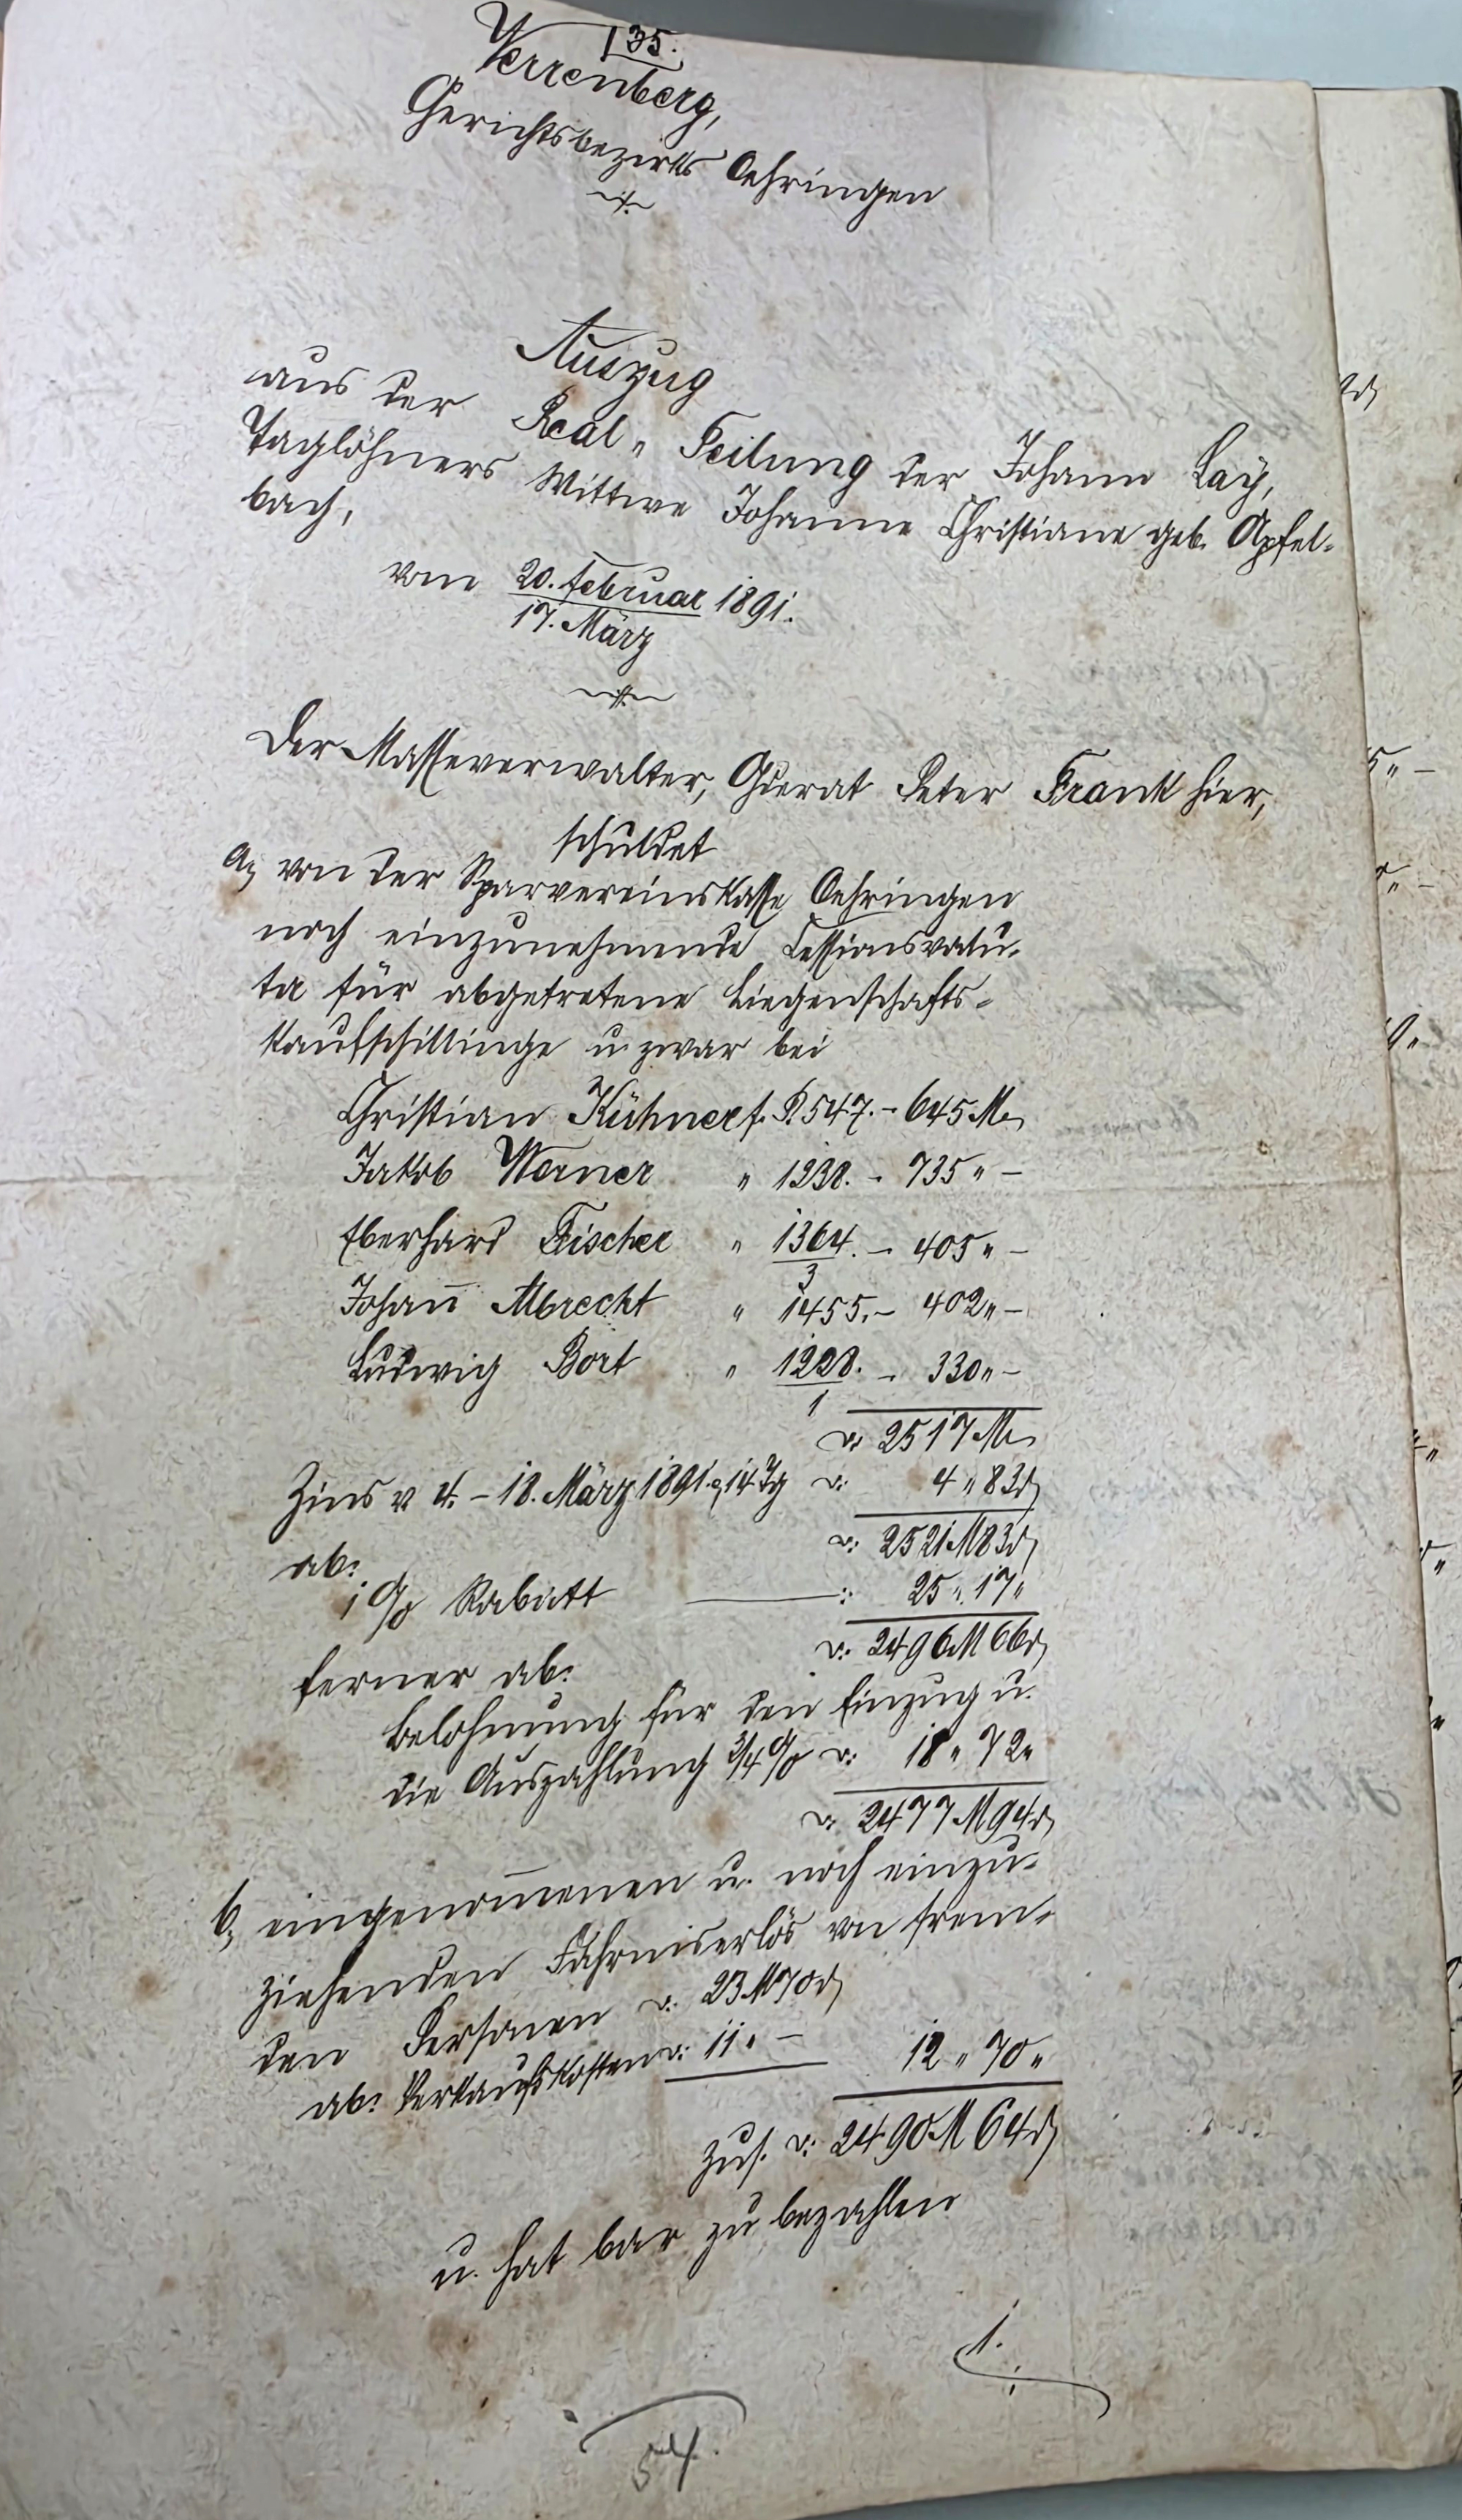 135.
Verrenberg,
Gerichtsbezirks Oehringen
Auszug
aus der Real-Teilung der Johann Lay,
Taglöhners Wittwe Johanne Christiane geb. Apfel-
bach,
vom 20. Februar 1891.
17. März
Der Masseverwalter, Gderat Peter Frank hier,
schuldet
a, von der Sparvereinskasse Oehringen
noch einzunehmende Cessionsvalu-
ta für abgetretene Liegenschafts-
kaufschillinge u. zwar bei
Christian Kühner f. P. 547. - 645 M.
Jakob Werner " 1238. - 735 " -
Eberhard Fischer " 1364. - 405 " -
3
Johann̄ Albrecht " 1455. - 402 " -
Ludwig Bort " 1228. - 330 " -
1
: 2517 M.
Zins v. 4. - 18. März 1891. a, 14 Tg : 4 " 83 ₰
: 2521 M 83 ₰
ab:
1 % Rabatt : 25 " 17 "
: 2496 M 66 ₰
ferner ab:
Belohnung für den Einzug u.
die Auszahlung 3/4 % : 18 " 72 "
: 2477 M 94 ₰
b, eingenom̄enen u. noch einzu-
ziehenden Fahrniserlös von frem-
den Personen : 23 M 70 ₰
ab: Verkaufskosten : 11 " - 12 " 70 "
zus. : 2490 M 64 ₰
u. hat bar zu bezahlen
1.
54.